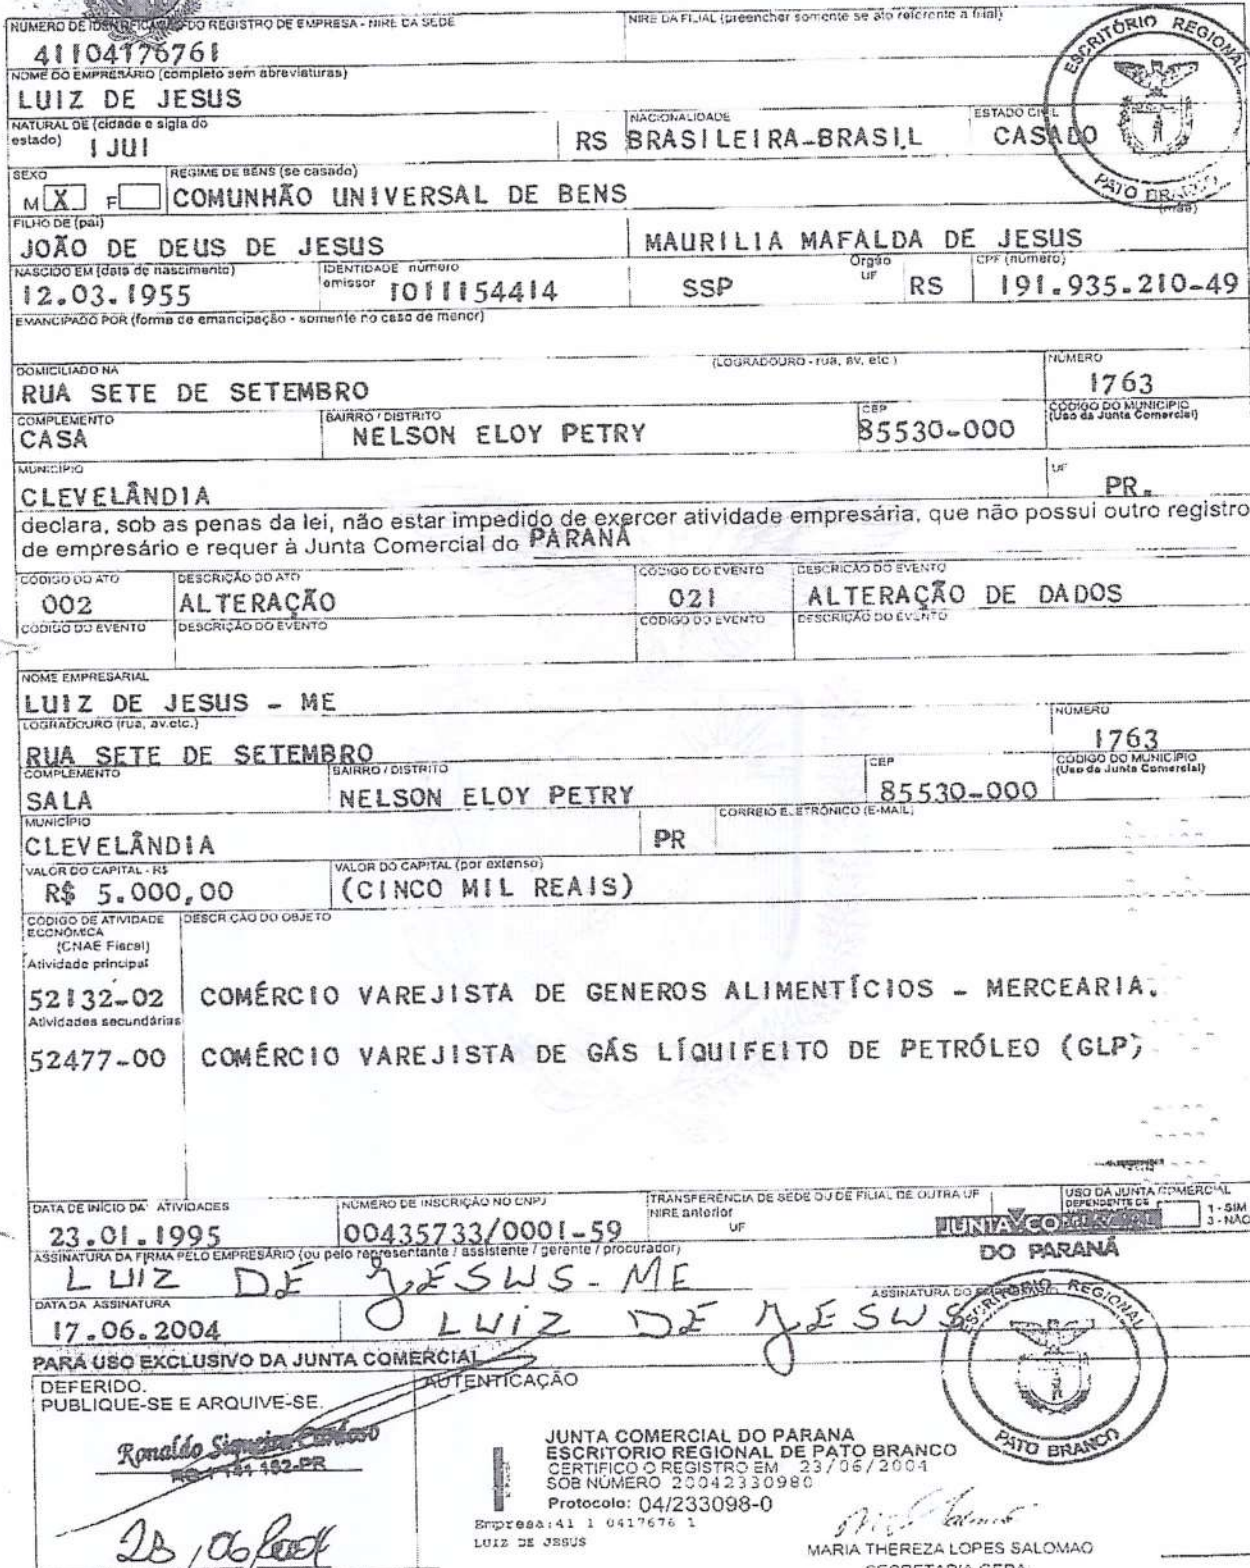 NÚMERO DE IDENTIFICAÇÃO DO REGISTRO DE EMPRESA - NIRE DA SEDE
NIRE DA FILIAL (preencher somente se ato referente a filial)
41104176761
NOME DO EMPRESÁRIO (completo sem abreviaturas)
LUIZ DE JESUS
NATURAL DE (cidade e sigla do estado)
IJUI RS
NACIONALIDADE
BRASILEIRA-BRASIL
ESTADO CIVIL
CASADO
ESCRITÓRIO REGIONAL
PATO BRANCO
SEXO
M X F
REGIME DE BENS (se casado)
COMUNHÃO UNIVERSAL DE BENS
FILHO DE (pai)
JOÃO DE DEUS DE JESUS
(mãe)
MAURILIA MAFALDA DE JESUS
NASCIDO EM (data de nascimento)
12.03.1955
IDENTIDADE número
1011154414
emissor
SSP
Órgão
UF
RS
CPF (número)
191.935.210-49
EMANCIPADO POR (forma de emancipação - somente no caso de menor)
DOMICILIADO NA
(LOGRADOURO - rua, av, etc.)
RUA SETE DE SETEMBRO
NÚMERO
1763
COMPLEMENTO
CASA
BAIRRO / DISTRITO
NELSON ELOY PETRY
CEP
85530-000
CÓDIGO DO MUNICÍPIO
(Uso da Junta Comercial)
MUNICÍPIO
CLEVELÂNDIA
UF
PR.
declara, sob as penas da lei, não estar impedido de exercer atividade empresária, que não possui outro registro
de empresário e requer à Junta Comercial do PARANÁ
CÓDIGO DO ATO
002
DESCRIÇÃO DO ATO
ALTERAÇÃO
CÓDIGO DO EVENTO
021
DESCRIÇÃO DO EVENTO
ALTERAÇÃO DE DADOS
CÓDIGO DO EVENTO
DESCRIÇÃO DO EVENTO
CÓDIGO DO EVENTO
DESCRIÇÃO DO EVENTO
NOME EMPRESARIAL
LUIZ DE JESUS - ME
LOGRADOURO (rua, av.etc.)
RUA SETE DE SETEMBRO
NÚMERO
1763
COMPLEMENTO
SALA
BAIRRO / DISTRITO
NELSON ELOY PETRY
CEP
85530-000
CÓDIGO DO MUNICÍPIO
(Uso da Junta Comercial)
MUNICÍPIO
CLEVELÂNDIA
PR
CORREIO ELETRÔNICO (E-MAIL)
VALOR DO CAPITAL - R$
R$ 5.000,00
VALOR DO CAPITAL (por extenso)
(CINCO MIL REAIS)
CÓDIGO DE ATIVIDADE ECONÔMICA
(CNAE Fiscal)
DESCRIÇÃO DO OBJETO
Atividade principal
52132-02 COMÉRCIO VAREJISTA DE GENEROS ALIMENTÍCIOS - MERCEARIA.
Atividades secundárias
52477-00 COMÉRCIO VAREJISTA DE GÁS LÍQUIFEITO DE PETRÓLEO (GLP)
DATA DE INÍCIO DA ATIVIDADES
23.01.1995
NÚMERO DE INSCRIÇÃO NO CNPJ
00435733/0001-59
TRANSFERÊNCIA DE SEDE OU DE FILIAL DE OUTRA UF
NIRE anterior
UF
USO DA JUNTA COMERCIAL
DEPENDENTE DE
1 - SIM
3 - NÃO
JUNTA COMERCIAL
DO PARANÁ
ASSINATURA DA FIRMA PELO EMPRESÁRIO (ou pelo representante / assistente / gerente / procurador)
LUIZ DE JESUS - ME
DATA DA ASSINATURA
17.06.2004
ASSINATURA DO EMPRESÁRIO
LUIZ DE JESUS
ESCRITÓRIO REGIONAL
PATO BRANCO
PARA USO EXCLUSIVO DA JUNTA COMERCIAL
DEFERIDO.
PUBLIQUE-SE E ARQUIVE-SE.
Ronaldo Siqueira Cardoso
AUTENTICAÇÃO
JUNTA COMERCIAL DO PARANA
ESCRITORIO REGIONAL DE PATO BRANCO
CERTIFICO O REGISTRO EM 23/06/2004
SOB NÚMERO 20042330980
Protocolo: 04/233098-0
Empresa:41 1 0417676 1
LUIZ DE JESUS
MARIA THEREZA LOPES SALOMAO
SECRETARIA GERAL